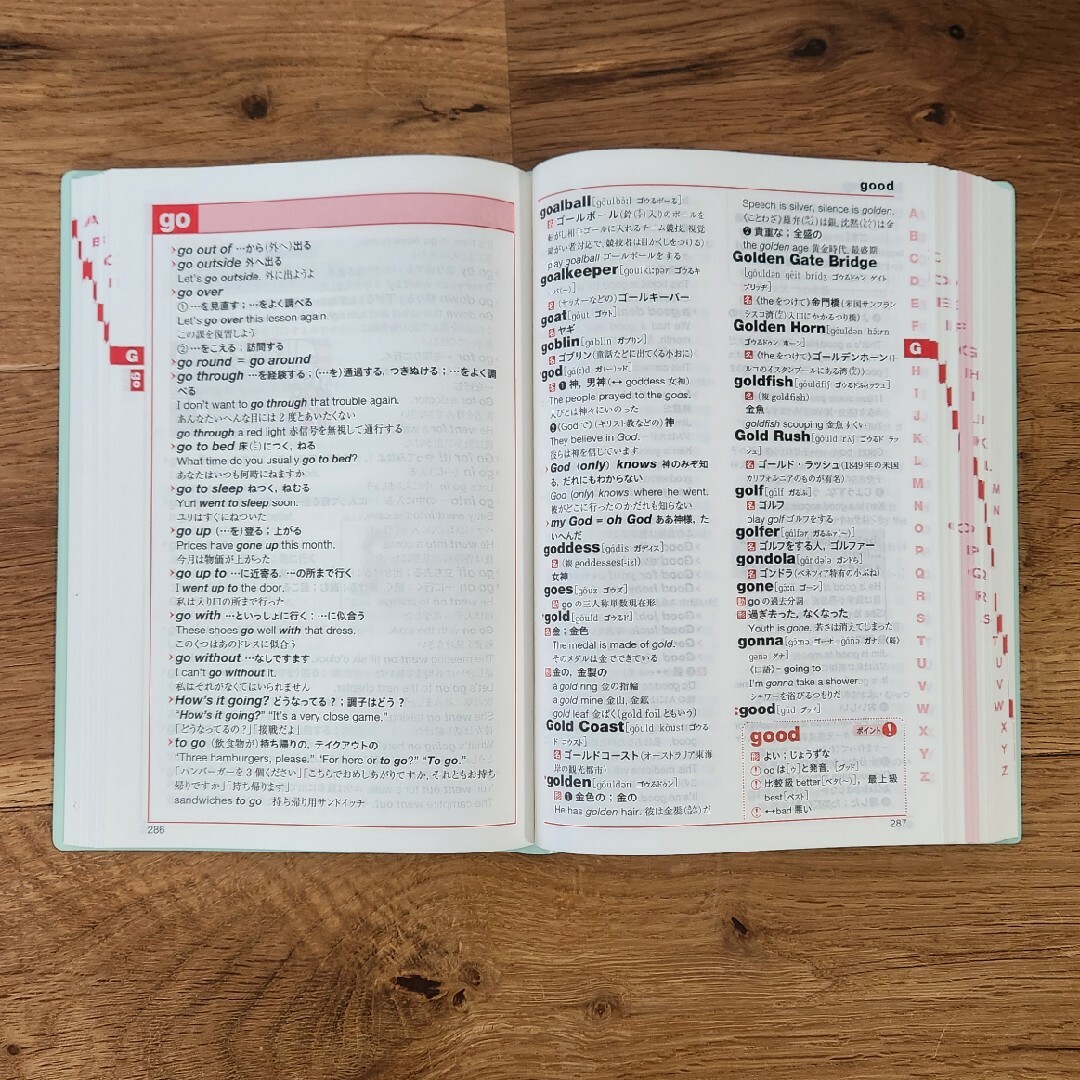 go
go out of …から(外へ)出る
go outside 外へ出る
Let's go outside. 外に出ようよ
go over
①…を見直す；…をよく調べる
Let's go over this lesson again.
この課を復習しよう
②…をこえる；訪問する
go round = go around
go through …を経験する；(…を)通過する, つきぬける；…をよく調
べる
I don't want to go through that trouble again.
あんなたいへんな目には2度とあいたくない
go through a red light 赤信号を無視して通行する
go to bed 床につく, ねる
What time do you usually go to bed?
あなたはいつも何時にねますか
go to sleep ねつく, ねむる
Yuri went to sleep soon.
ユリはすぐにねついた
go up (…を)登る；上がる
Prices have gone up this month.
今月は物価が上がった
go up to …に近寄る, …の所まで行く
I went up to the door.
私は入り口の所まで行った
go with …といっしょに行く；…に似合う
These shoes go well with that dress.
このくつはあのドレスに似合う
go without …なしですます
I can't go without it.
私はそれがなくてはいられません
How's it going? どうなってる？；調子はどう？
"How's it going?" "It's a very close game."
「どうなってるの？」「接戦だよ」
to go (飲食物が)持ち帰りの, テイクアウトの
"Three hamburgers, please." "For here or to go?" "To go."
「ハンバーガーを3個ください」「こちらでおめしあがりですか, それともお持ち
帰りですか」「持ち帰ります」
sandwiches to go 持ち帰り用サンドイッチ
286
A
B
C
G
go
good
goalball ゴウるボーる
名 ゴールボール(鈴入りのボールを
ころがし相手ゴールに入れるチーム競技. 視覚
障がい者対応で, 競技者は目かくしをつける)
play goalball ゴールボールをする
goalkeeper
名 (サッカーなどの)ゴールキーパー
goat [góut ゴウト]
名 ヤギ
goblin [gáblin ガブリン]
名 ゴブリン(童話などに出てくる小おに)
god
名 ❶ 神, 男神 (↔ goddess 女神)
The people prayed to the gods.
人びとは神々にいのった
(Godで)(キリスト教などの)神
They believe in God.
彼らは神を信じています
God (only) knows 神のみぞ知
る, だれにもわからない
God (only) knows where he went.
彼がどこに行ったのかだれも知らない
my God = oh God ああ神様, た
いへんだ
goddess [gádis ガディス]
名 (複 goddesses[-iz])
女神
goes [góuz ゴウズ]
動 goの三人称単数現在形
gold [góuld ゴウるド]
名 金；金色
The medal is made of gold.
そのメダルは金でできている
形 金の, 金製の
a gold ring 金の指輪
a gold mine 金山, 金鉱
gold leaf 金ぱく(gold foil ともいう)
Gold Coast
名 ゴールドコースト(オーストラリア東海
岸の観光都市)
golden [góuldən ゴウるドゥン]
形 ❶ 金色の；金の
He has golden hair. 彼は金髪だ
Speech is silver, silence is golden.
(ことわざ)雄弁は銀, 沈黙は金
❷ 貴重な；全盛の
the golden age 黄金時代, 最盛期
Golden Gate Bridge
名 (theをつけて)金門橋(米国サンフラン
シスコ湾入口にかかるつり橋)
Golden Horn
名 (theをつけて)ゴールデンホーン(ト
ルコのイスタンブールにある湾)
goldfish
名 (複 goldfish)
金魚
goldfish scooping 金魚すくい
Gold Rush
名 ゴールド・ラッシュ(1849年の米国
カリフォルニアのものが有名)
golf
名 ゴルフ
play golf ゴルフをする
golfer
名 ゴルフをする人, ゴルファー
gondola
名 ゴンドラ(ベネツィア特有の小ぶね)
gone
動 goの過去分詞
形 過ぎ去った, なくなった
Youth is gone. 若さは消えてしまった
gonna
(口語) = going to
I'm gonna take a shower.
シャワーを浴びるつもりだ
good
good ポイント!
形 よい；じょうずな
ooは[u]と発音. [グッド]
比較級 better[ベタ〜], 最上級
best[ベスト]
↔bad 悪い
287
A
B
C
D
E
F
G
H
I
J
K
L
M
N
O
P
Q
R
S
T
U
V
W
X
Y
Z